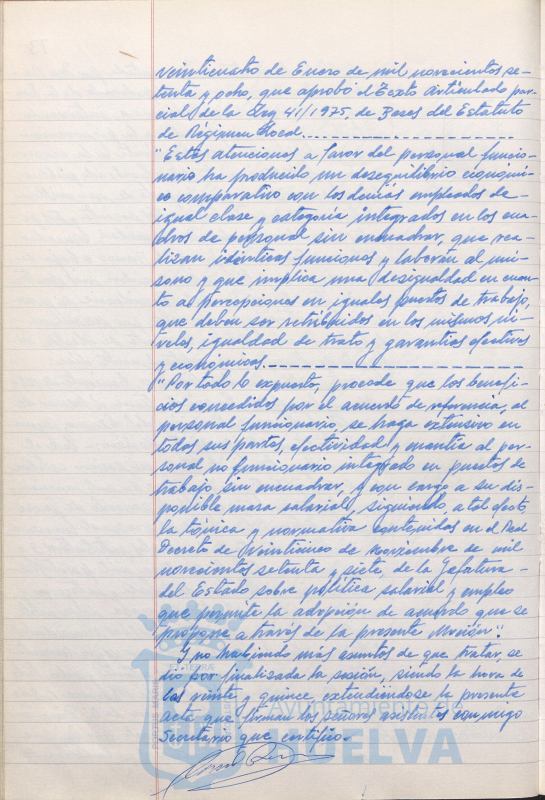 veinticuatro de Enero de mil novecientos se-
tenta y ocho, que aprobó el Texto Articulado par-
cial de la Ley 41/1975, de Bases del Estatuto
de Régimen Local.
"Estas atenciones a favor del personal funcio-
nario ha producido un desequilibrio económi-
co comparativo con los demás empleados de
igual clase y categoría integrados en los cua-
dros de personal sin encuadrar, que rea-
lizan idénticas funciones y laboran al uní-
sono y que implica una desigualdad en cuan-
to a percepciones en iguales puestos de trabajo,
que deben ser retribuidos en los mismos ni-
veles, igualdad de trato y garantías efectivas
y económicas.
"Por todo lo expuesto, procede que los benefi-
cios concedidos por el acuerdo de referencia, al
personal funcionario, se haga extensivo en
todas sus partes, efectividad y cuantía al per-
sonal no funcionario integrado en puestos de
trabajo sin encuadrar, y con cargo a su dis-
ponible masa salarial, siguiendo, a tal efecto,
la tónica y normativa contenidos en el Real
Decreto de Veinticinco de Noviembre de mil
novecientos setenta y siete, de la Jefatura
del Estado sobre política salarial y empleo
que permite la adopción de acuerdo que se
propone a través de la presente Moción".
Y no habiendo más asuntos de que tratar, se
dió por finalizada la sesión, siendo la hora de
las veinte y quince, extendiéndose la presente
acta que firman los señores asistentes conmigo
Secretario que certifico.
Ayuntamiento de
HUELVA